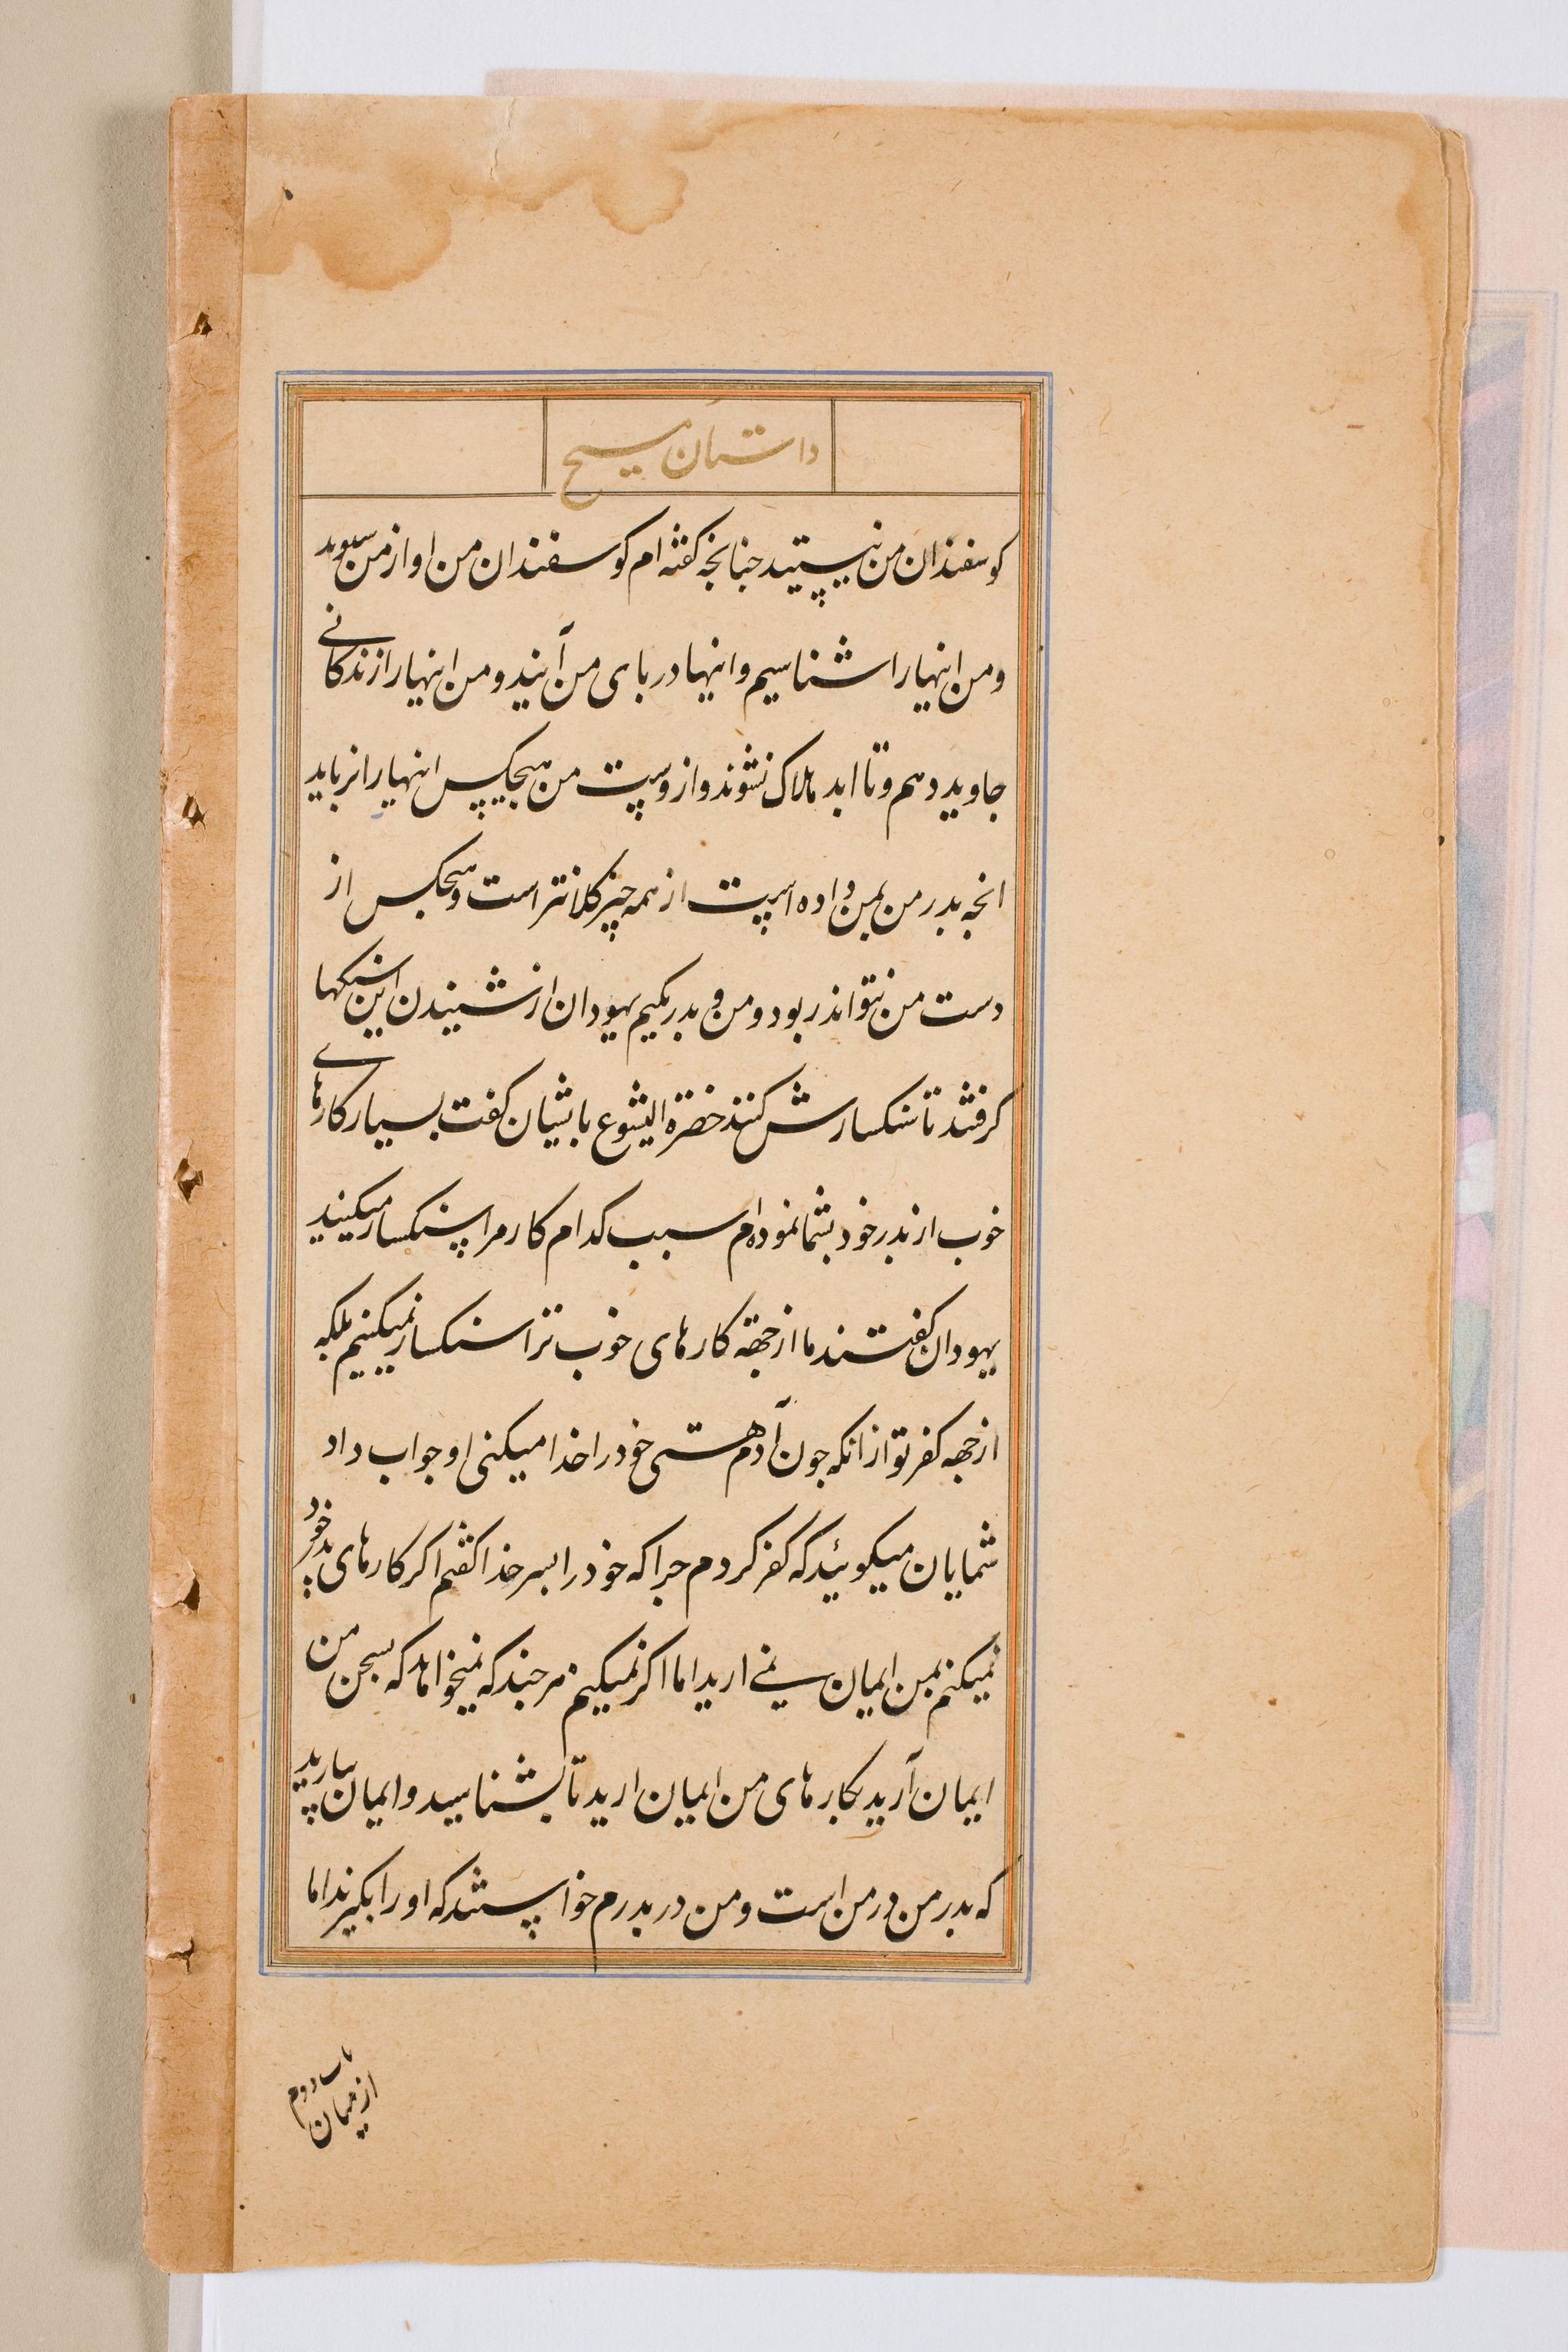 داستان مسیح
کوسفندان من نیستید جنانجه کفته ام کوسفندان من اواز من شنوند
ومن اینهارا شناسیم واینها در بای من آیند ومن اینهارا زندکانی
جاوید دهم وتا ابد هلاک نشوند واز دست من هیجکس اینهارا نرباید
انجه بدر من بمن داده است از همه چیز کلانتر است وهیجکس از
دست من نتواند ربود ومن و بدر یکیم یهودان از شنیدن این سنکها
کرفتند تا سنکسارش کنند حضرة ایشوع بایشان کفت بسیار کارهای
خوب از بدر خود بشما نموده ام سبب کدام کار مرا سنکسار میکنید
یهودان کفتند ما از جهة کارهای خوب ترا سنکسار نمیکنیم بلکه
از جهه کفر تو از انکه جون آدم هستی خود را خدا میکنی او جواب داد
شمایان میکوئید که کفر کردم جرا که خود را بسر خدا کفتم اکر کارهای بدر خود
نمیکنم بمن ایمان نمی ارید اما اکر میکنم هر جند که نمیخواهد که بسخن من
ایمان آرید بکارهای من ایمان ارید تا بشناسید وایمان بیارید
که بدر من در من است ومن در بدرم خواستند که اورا بکیرند اما
از میان